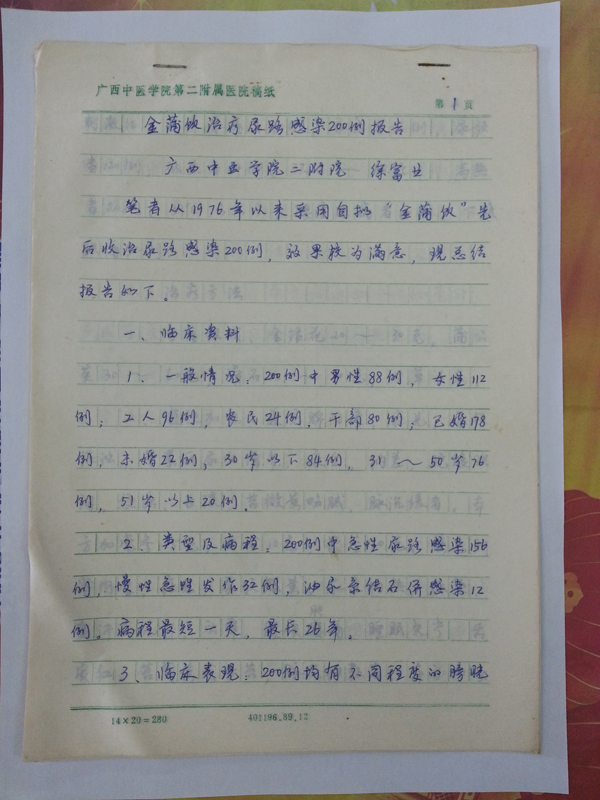 广西中医学院第二附属医院稿纸
第1页
金蒲饮治疗尿路感染200例报告
广西中医学院二附院 徐富业
笔者从1976年以来采用自拟“金蒲饮”先
后收治尿路感染200例，效果较为满意，现总结
报告如下。
一、临床资料
1、一般情况：200例中男性88例，女性112
例；工人96例，农民24例，干部80例；已婚178
例，未婚22例；30岁以下84例，31～50岁76
例，51岁以上20例。
2、类型及病程：200例中急性尿路感染156
例，慢性急性发作32例，泌尿系结石併感染12
例。病程最短一天，最长26年。
3、临床表现：200例均有不同程度的膀胱
14×20=280
401196.89.12